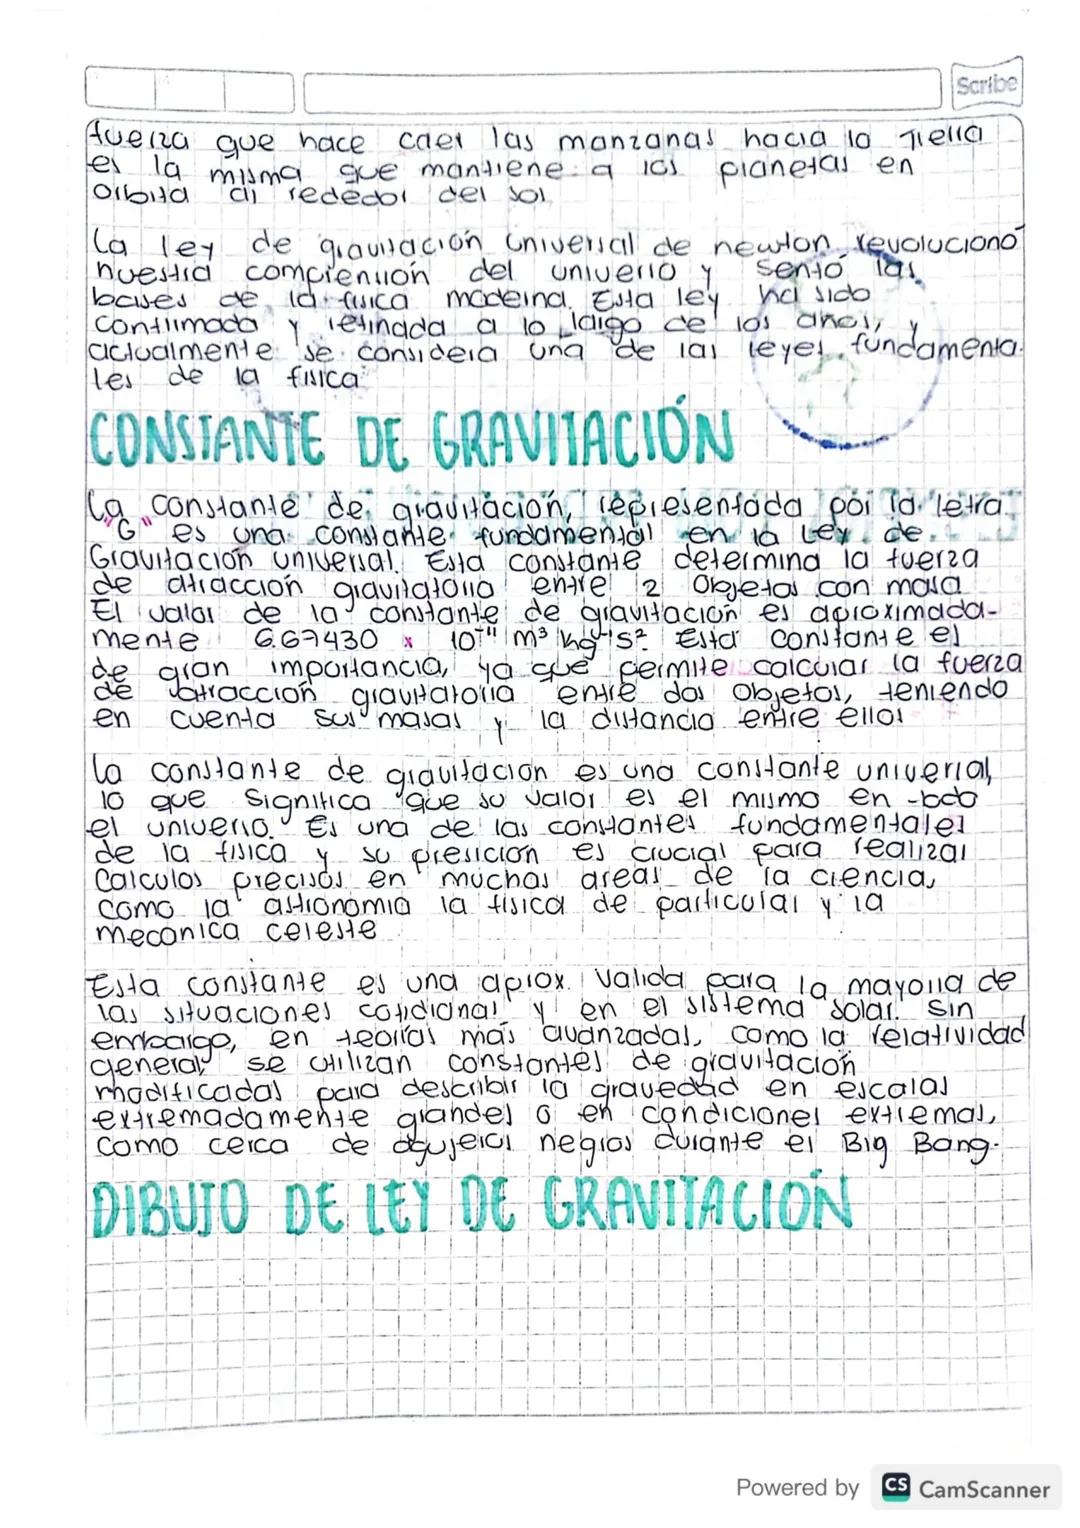 Scribe
fuerza que hace caer las manzanas hacia la Tierra
es la misma que mantiene a los planetas en
orbita al rededor del sol
La ley de gravitación universal de newton revolucionó
nuestra comprensión del universo y sentó las
bases de la fisica moderna. Esta ley ha sido
confirmada y refinada a lo largo de los años, y
actualmente se considera una de las leyes fundamenta-
les de la fisica.
CONSTANTE DE GRAVITACIÓN
La constante de gravitación, representada por la letra
"G" es una constante fundamental en la Ley de
Gravitación universal. Esta constante determina la fuerza
de atracción gravitatoria entre 2 Objetos con masa
El valor de la constante de gravitación es aproximada-
mente 6.67430 x 10⁻¹¹ m³ kg⁻¹s² Esta constante es
de gran importancia, ya que permite calcular la fuerza
de atracción gravitatoria entre dos Objetos, teniendo
en cuenta sus masas y la distancia entre ellos
La constante de gravitación es una constante universal,
lo que significa que su valor es el mismo en todo
el universo. Es una de las constantes fundamentales
de la fisica y su presición es crucial para realizar
Calculos precisos en muchas areas de la ciencia,
como la astronomia la fisica de particular y la
mecánica celeste
Esta constante es una aprox. valida para la mayoria de
las situaciones cotidianas y en el sistema solar. Sin
embargo, en teorías más avanzadas, como la relatividad
general, se utilizan constantes de gravitación
modificadas para describir la gravedad en escalas
extremadamente grandes o en condiciones extremas,
como cerca de agujeros negros durante el Big Bang.
DIBUJO DE LEY DE GRAVITACIÓN
Powered by CS CamScanner